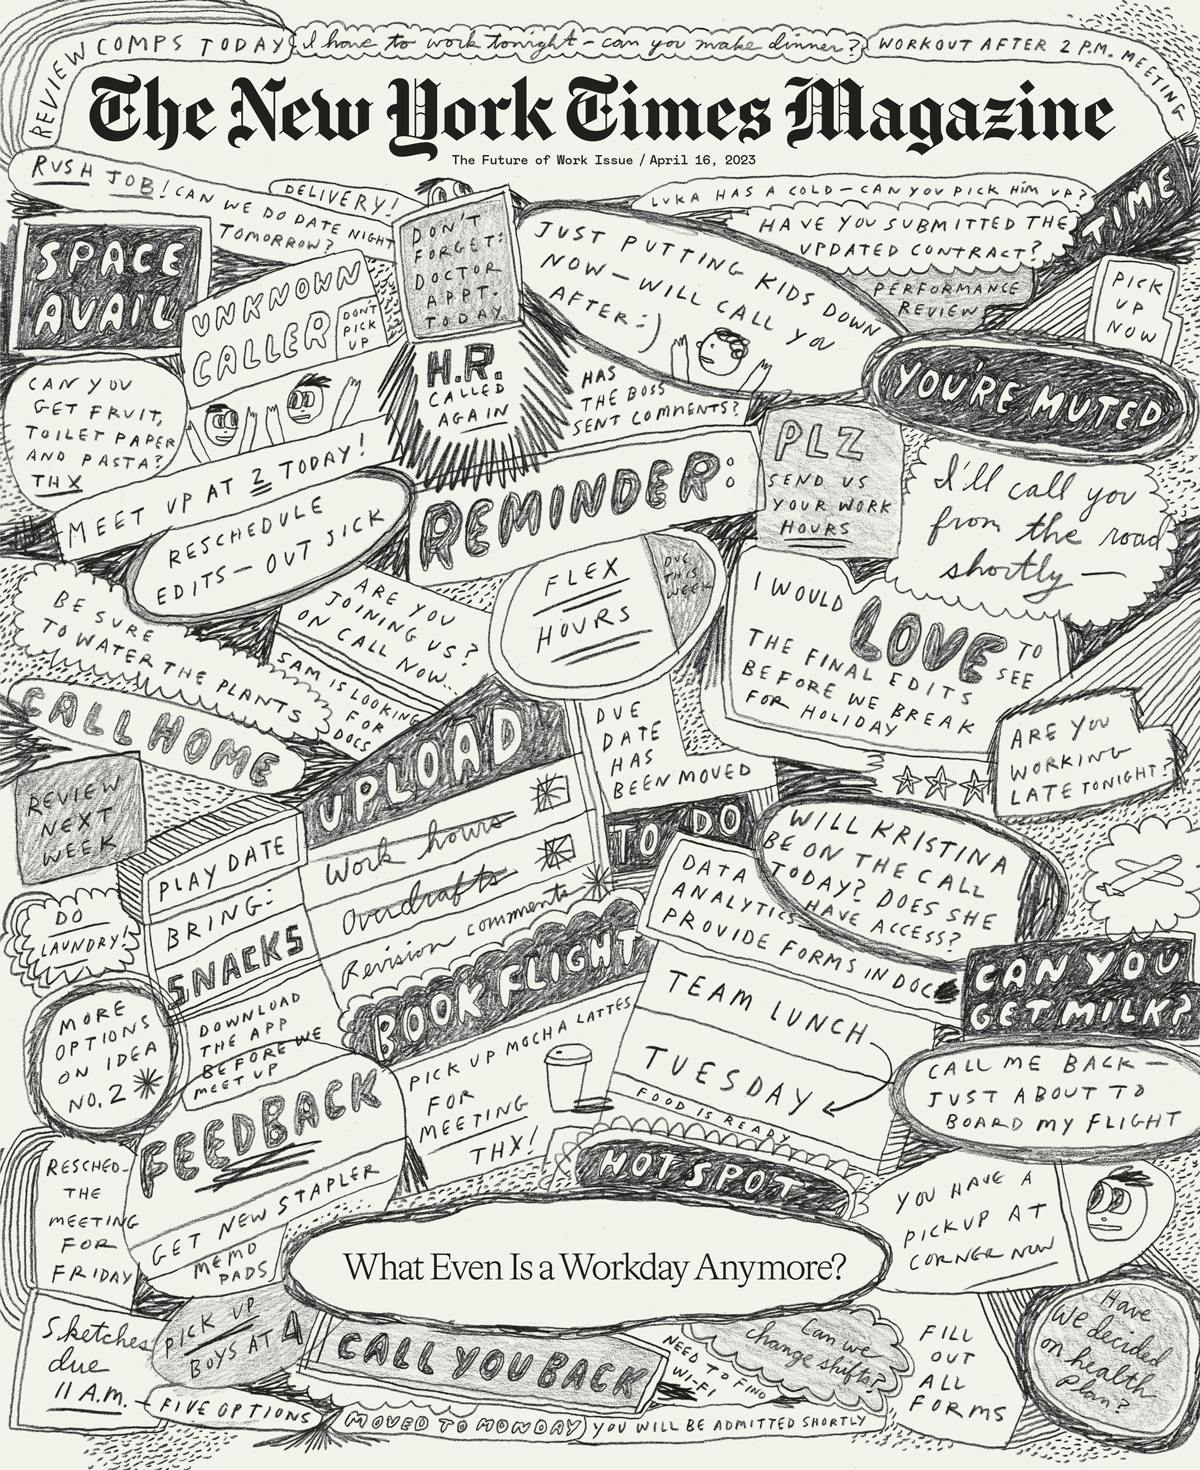 REVIEW COMPS TODAY
I have to work tonight - can you make dinner?
WORKOUT AFTER 2 P.M. MEETING
The New York Times Magazine
The Future of Work Issue / April 16, 2023
RUSH JOB! CAN WE DO DATE NIGHT
TOMORROW?
DELIVERY!
DON'T
FORGET:
DOCTOR
APPT.
TODAY
LUKA HAS A COLD - CAN YOU PICK HIM UP?
HAVE YOU SUBMITTED THE
UPDATED CONTRACT?
TIME
SPACE
AVAIL
UNKNOWN
CALLER
DON'T
PICK
UP
JUST PUTTING KIDS DOWN
NOW - WILL CALL YOU
AFTER :)
PERFORMANCE
REVIEW
PICK
UP
NOW
H.R.
CALLED
AGAIN
HAS
THE BOSS
SENT COMMENTS?
YOU'RE MUTED
CAN YOU
GET FRUIT,
TOILET PAPER
AND PASTA?
THX
MEET UP AT 2 TODAY!
REMINDER:
PLZ
SEND US
YOUR WORK
HOURS
I'll call you
from the road
shortly —
RESCHEDULE
EDITS - OUT SICK
FLEX
HOURS
DUE
THIS
WEEK
I WOULD LOVE TO SEE
THE FINAL EDITS
BEFORE WE BREAK
FOR HOLIDAY
BE SURE
TO WATER THE PLANTS
ARE YOU
JOINING US?
ON CALL NOW..
SAM IS LOOKING
FOR
DOCS
CALL HOME
UPLOAD
Work hours
Overdrafts
Revision comments
DUE
DATE
HAS
BEEN MOVED
ARE YOU
WORKING
LATE TONIGHT?
REVIEW
NEXT
WEEK
PLAY DATE
BRING:
SNACKS
TO DO
WILL KRISTINA
BE ON THE CALL
TODAY? DOES SHE
HAVE ACCESS?
DATA
ANALYTICS
PROVIDE FORMS IN DOC
DO
LAUNDRY!
BOOK FLIGHT
TEAM LUNCH
TUESDAY
FOOD IS READY
CAN YOU
GET MILK?
MORE
OPTIONS
ON IDEA
NO. 2
DOWNLOAD
THE APP
BEFORE WE
MEET UP
PICK UP MOCHA LATTES
FOR
MEETING
THX!
CALL ME BACK —
JUST ABOUT TO
BOARD MY FLIGHT
FEEDBACK
GET NEW STAPLER
MEMO
PADS
HOT SPOT
RESCHED-
THE
MEETING
FOR
FRIDAY
YOU HAVE A
PICKUP AT
CORNER NOW
What Even Is a Workday Anymore?
Sketches
due
11 A.M.
PICK UP
BOYS AT 4
CALL YOU BACK
NEED TO FIND
WI-FI
Can we
change shifts?
FILL
OUT
ALL
FORMS
Have
we decided
on health
plan?
FIVE OPTIONS
MOVED TO MONDAY
YOU WILL BE ADMITTED SHORTLY